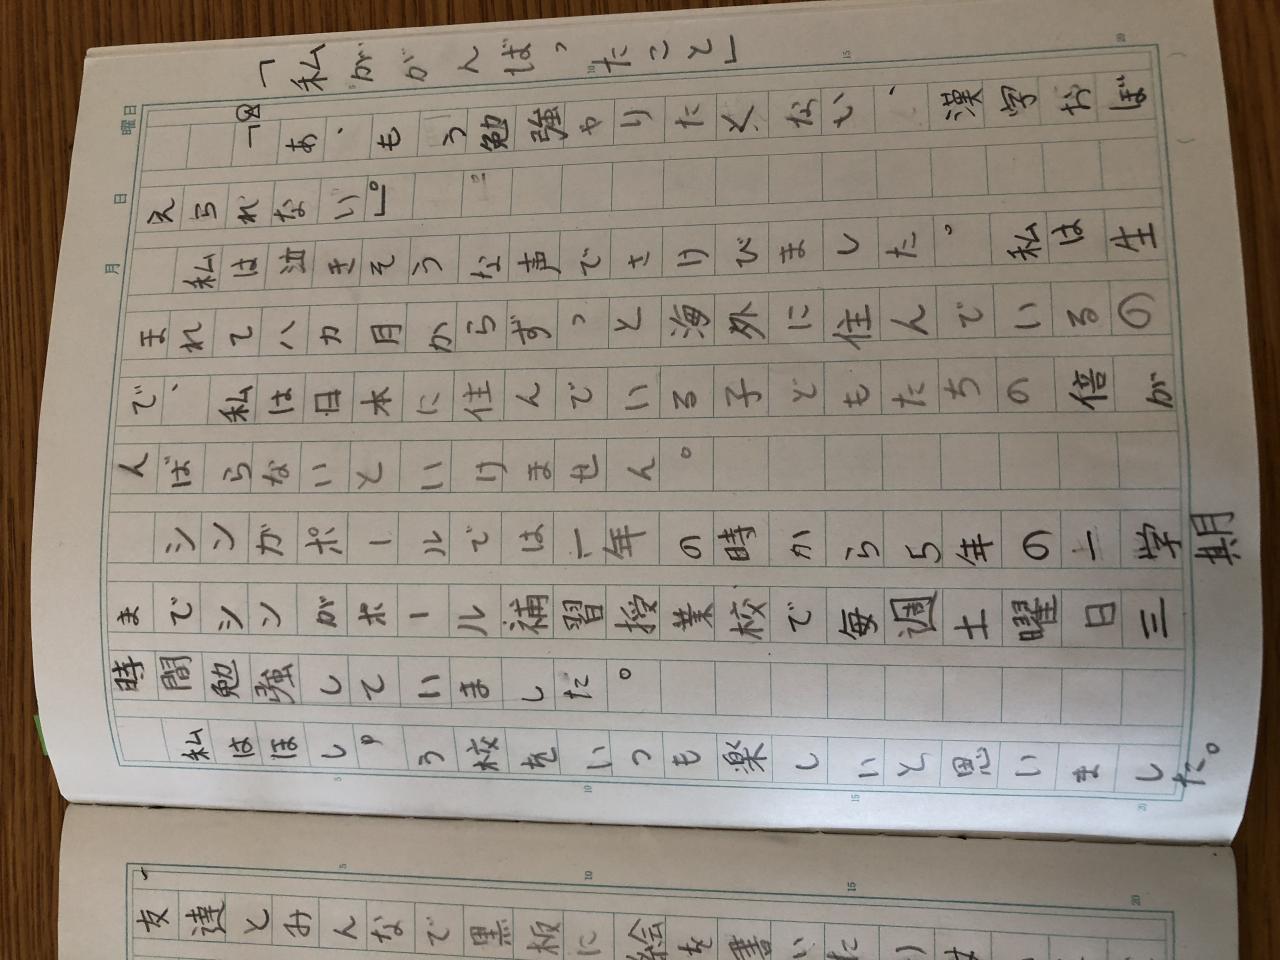 「私ががんばったこと」
「あ、もう勉強やりたくない、漢字おぼ
えられない」。
私は泣きそうな声でさけびました。私は生
まれて八カ月からずっと海外に住んでいるの
で、私は日本に住んでいる子どもたちの倍が
んばらないといけません。
シンガポールでは一年の時から5年の一学期
までシンガポール補習授業校で毎週土曜日三
時間勉強していました。
私はほしゅう校をいつも楽しいと思いました。
友達とみんなで黒板に絵を書いたり
曜日
日
月
5
10
15
20
5
10
15
20